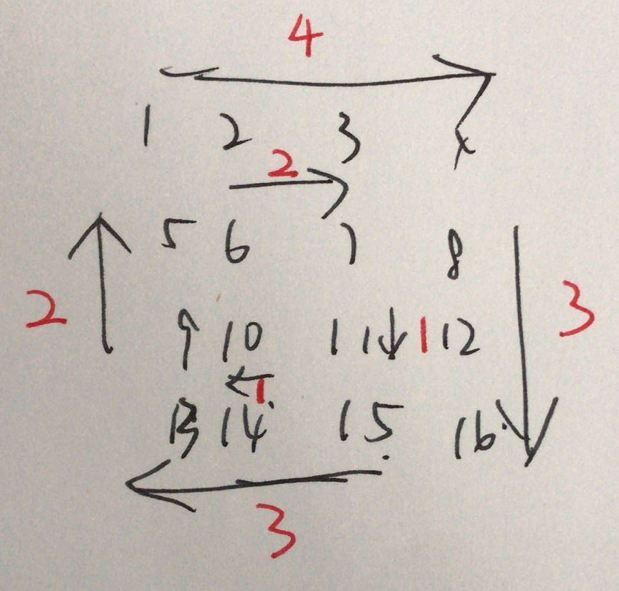 4
1 2 3 4
2
5 6 7 8
2 3
9 10 11 1 12
1
13 14 15 16
3